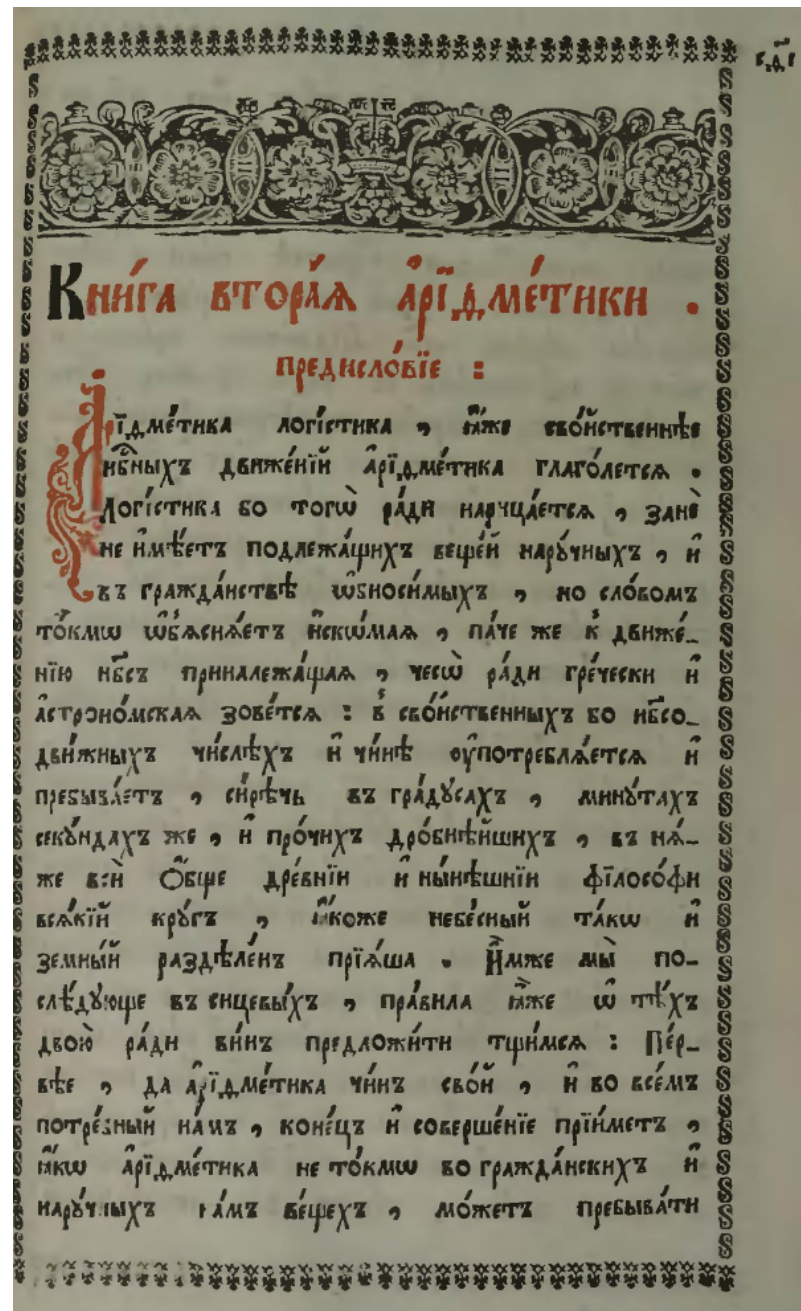 Кни́га втора́ѧ а҆рїѳме́тики .
предисло́вїе :
А҆рїѳме́тика логі́стика , ꙗ҆́же сво́йственнѣе
нб҃ныхъ движе́нїй а҆рїѳме́тика глаго́летсѧ .
Логі́стика бо тогѡ̀ ра́ди нарица́етсѧ , занѐ
не и҆мѣ́етъ подлежа́щихъ веще́й нарꙋ́чныхъ , и҆
въ гражда́нствѣ ѡ҆бноси́мыхъ , но сло́вомъ
то́кмѡ ѡ҆б̾ѧснѧ́етъ и҆скѡ́маѧ , па́че же к̾ движе́-
нїю нб҃съ принадлежа́щаѧ , чесѡ̀ ра́ди гре́чески и҆
а҆строно́мскаѧ зове́тсѧ : в̾ сво́йственныхъ бо нб҃со-
дви́жныхъ чи́слѣхъ и҆ чи́нѣ ᲂу҆потреблѧ́етсѧ и҆
пребыва́етъ , си́рѣчь въ гра́дꙋсахъ , минꙋ́тахъ
секꙋ́ндахъ же , и҆ про́чихъ дробнѣ́йшихъ , въ нѧ́-
же всѝ ѻ҆́бще дре́внїи и҆ ны́нѣшнїи фїлосо́фи
всѧ́кїй крꙋ́гъ , ꙗ҆́коже небе́сный та́кѡ и҆
земны́й раздѣле́нъ прїѧ́ша . И҆́мже мы̀ по-
слѣ́дꙋюще въ сицевы́хъ , пра́вила ꙗ҆̀же ѡ҆ тѣ́хъ
двою̀ ра́ди ви́нъ предложи́ти тщи́мсѧ : Пе́р-
вѣе , да а҆рїѳме́тика чи́нъ сво́й , и҆ во все́мъ
потре́бный на́мъ , коне́цъ и҆ соверше́нїе прїи́метъ ,
ꙗ҆́кѡ а҆рїѳме́тика не то́кмѡ во гражда́нскихъ и҆
нарꙋ́чныхъ на́мъ ве́щехъ , мо́жетъ пребыва́ти